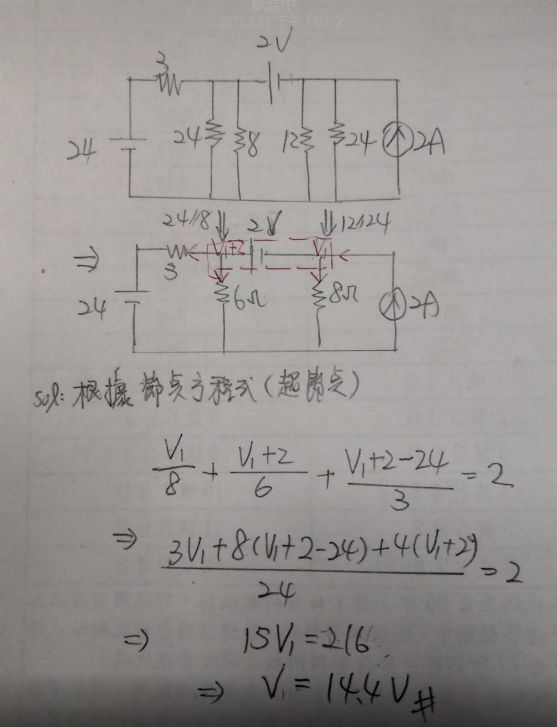 2V
3
24
24
8
12
24
2A
24//8
2V
12//24
⇒
V1+2
V1
3
24
6Ω
8Ω
2A
sol: 根據節点方程式(超節点)
V1/8 + V1+2/6 + V1+2-24/3 = 2
⇒ 3V1+8(V1+2-24)+4(V1+2)/24 = 2
⇒ 15V1=216
⇒ V1 = 14.4V #